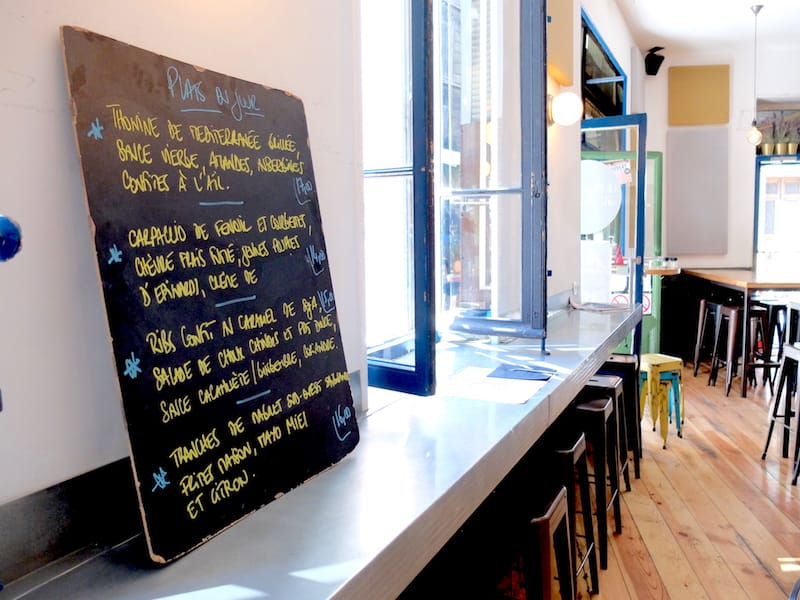 PLATS DU JOUR
THONINE DE MEDITERRANÉE GRILLÉE,
SAUCE VIERGE, AMANDES, AUBERGINES
CONFITES À L'AIL.
17,00
CARPACCIO DE FENOUIL ET COURGETTES,
CHÈVRE FRAIS FUMÉ, JEUNES POUSSES
D'EPINARDS, CRÈME DE
14,00
RIBS CONFIT AU CARAMEL DE SOJA,
SALADE DE CHOUX CHINOIS ET POIS
SAUCE CACAHUÈTE/GINGEMBRE, CORIANDRE.
TRANCHES DE MAGRET SUD-OUEST
FRITES MAISON, MAYO MIEL
ET CITRON.
16,00